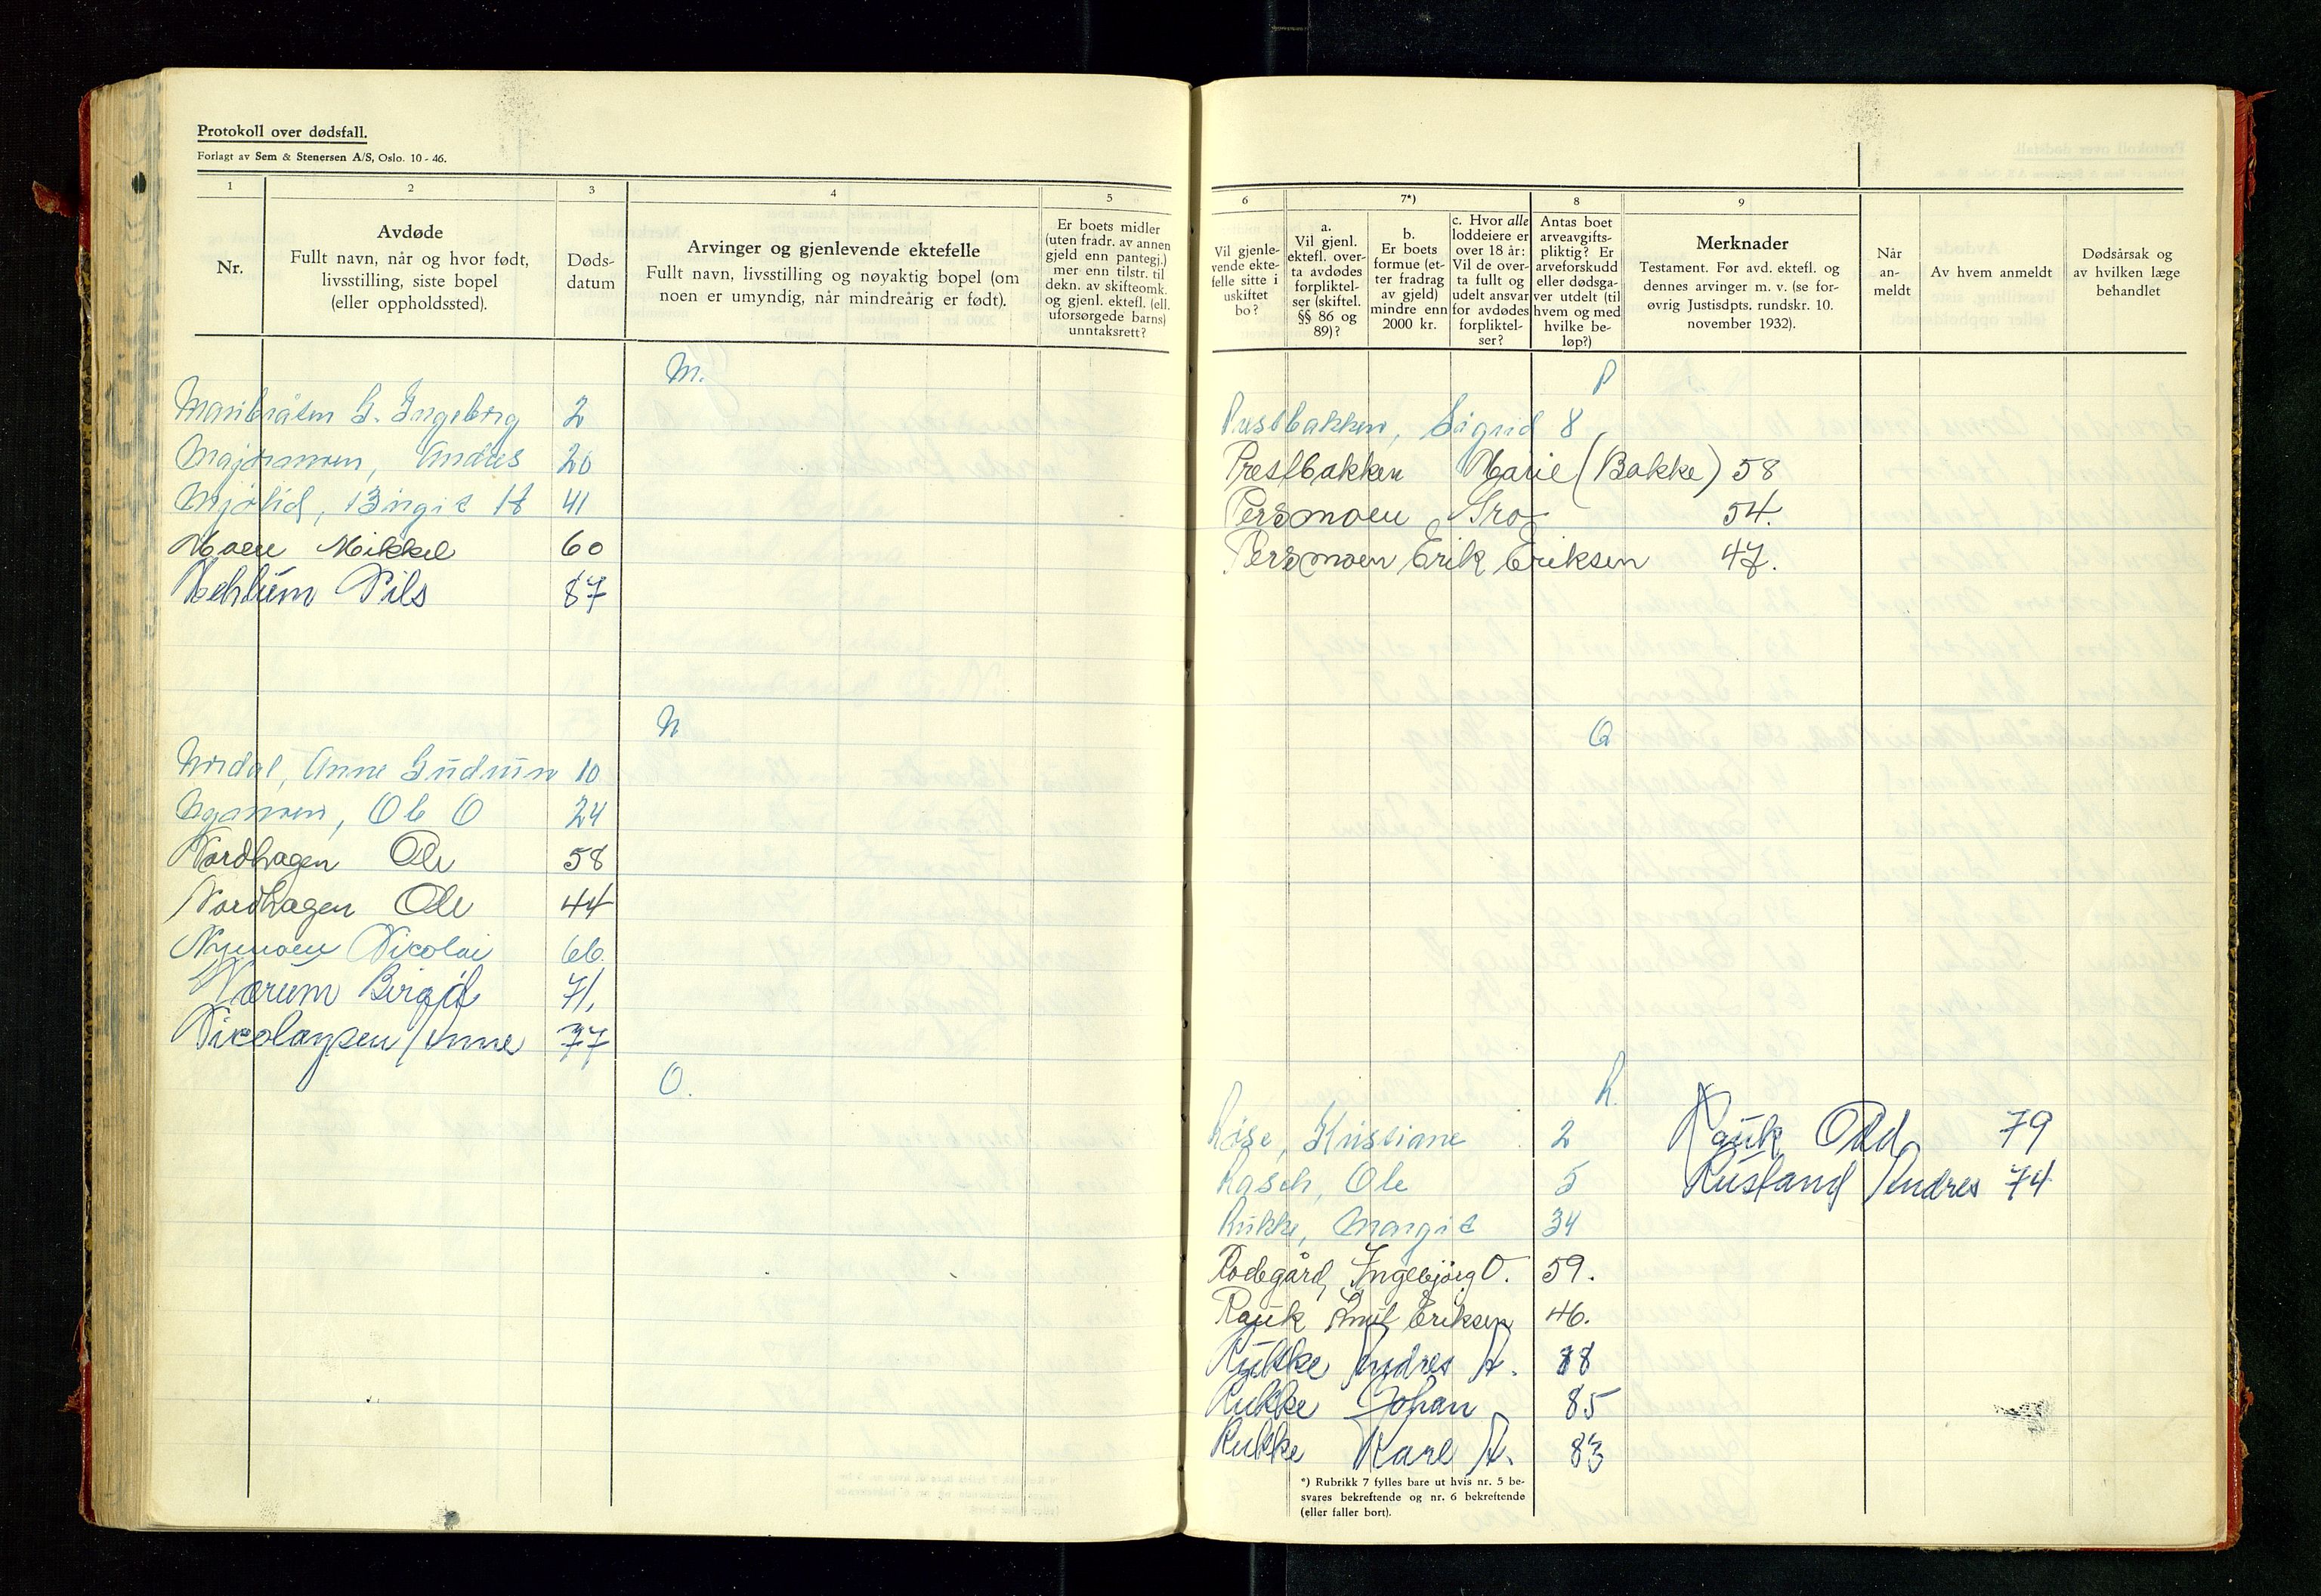 Protokoll over dødsfall.
Forlagt av Sem & Stenersen A/S, Oslo. 10 - 46.
1
2
3
4
5
Nr.
Avdøde
Fullt navn, når og hvor født,
livsstilling, siste bopel
(eller oppholdssted).
Døds-
datum
Arvinger og gjenlevende ektefelle
Fullt navn, livsstilling og nøyaktig bopel (om
noen er umyndig, når mindreårig er født).
Er boets midler
(uten fradr. av annen
gjeld enn pantegj.)
mer enn tilstr. til
dekn. av skifteomk.
og gjenl. ektefl. (ell.
uforsørgede barns)
unntaksrett?
M.
Maribråten G. Ingeborg 2
Majormoen, Andres 20
Mjølid, Birgit H 41
Moen Mikkel 60
Mehlum Nils 87
N
Nordal, Anne Gudrun 10
Nymoen, Ole O 24
Nordhagen Ole 58
Nordhagen Ole 44
Nymoen Nicolai 66
Nærum Birgit 71.
Nicolaysen Anne 77
O.
6
7*)
8
9
Vil gjenle-
vende ekte-
felle sitte i
uskiftet
bo?
a.
Vil gjenl.
ektefl. over-
ta avdødes
forpliktel-
ser (skiftel.
§§ 86 og
89)?
b.
Er boets
formue (et-
ter fradrag
av gjeld)
mindre enn
2000 kr.
c. Hvor alle
loddeiere er
over 18 år:
Vil de over-
ta fullt og
udelt ansvar
for avdødes
forpliktel-
ser?
Antas boet
arveavgifts-
pliktig? Er
arveforskudd
eller dødsga-
ver utdelt (til
hvem og med
hvilke be-
løp?)
Merknader
Testament. Før avd. ektefl. og
dennes arvinger m. v. (se for-
øvrig Justisdpts. rundskr. 10.
november 1932).
Når
an-
meldt
Av hvem anmeldt
Dødsårsak og
av hvilken læge
behandlet
P
Prestbakken, Sigrid 8
Prestbakken Marie (Bakke) 58
Persmoen Gro 54.
Persmoen Erik Eriksen 47.
Q
R.
Rose, Kristiane 2
Rasch, Ole 5
Rukke, Margit 34
Rodegård, Ingebjørg O. 59.
Rauk Emil Eriksen 46.
Rukke Andres A. 88
Rukke Johan 85
Rukke Karl A. 83
Rauk Odd 79
Rustand Andres 74
*) Rubrikk 7 fylles bare ut hvis nr. 5 be-
svares bekreftende og nr. 6 bekreftende
(eller faller bort).